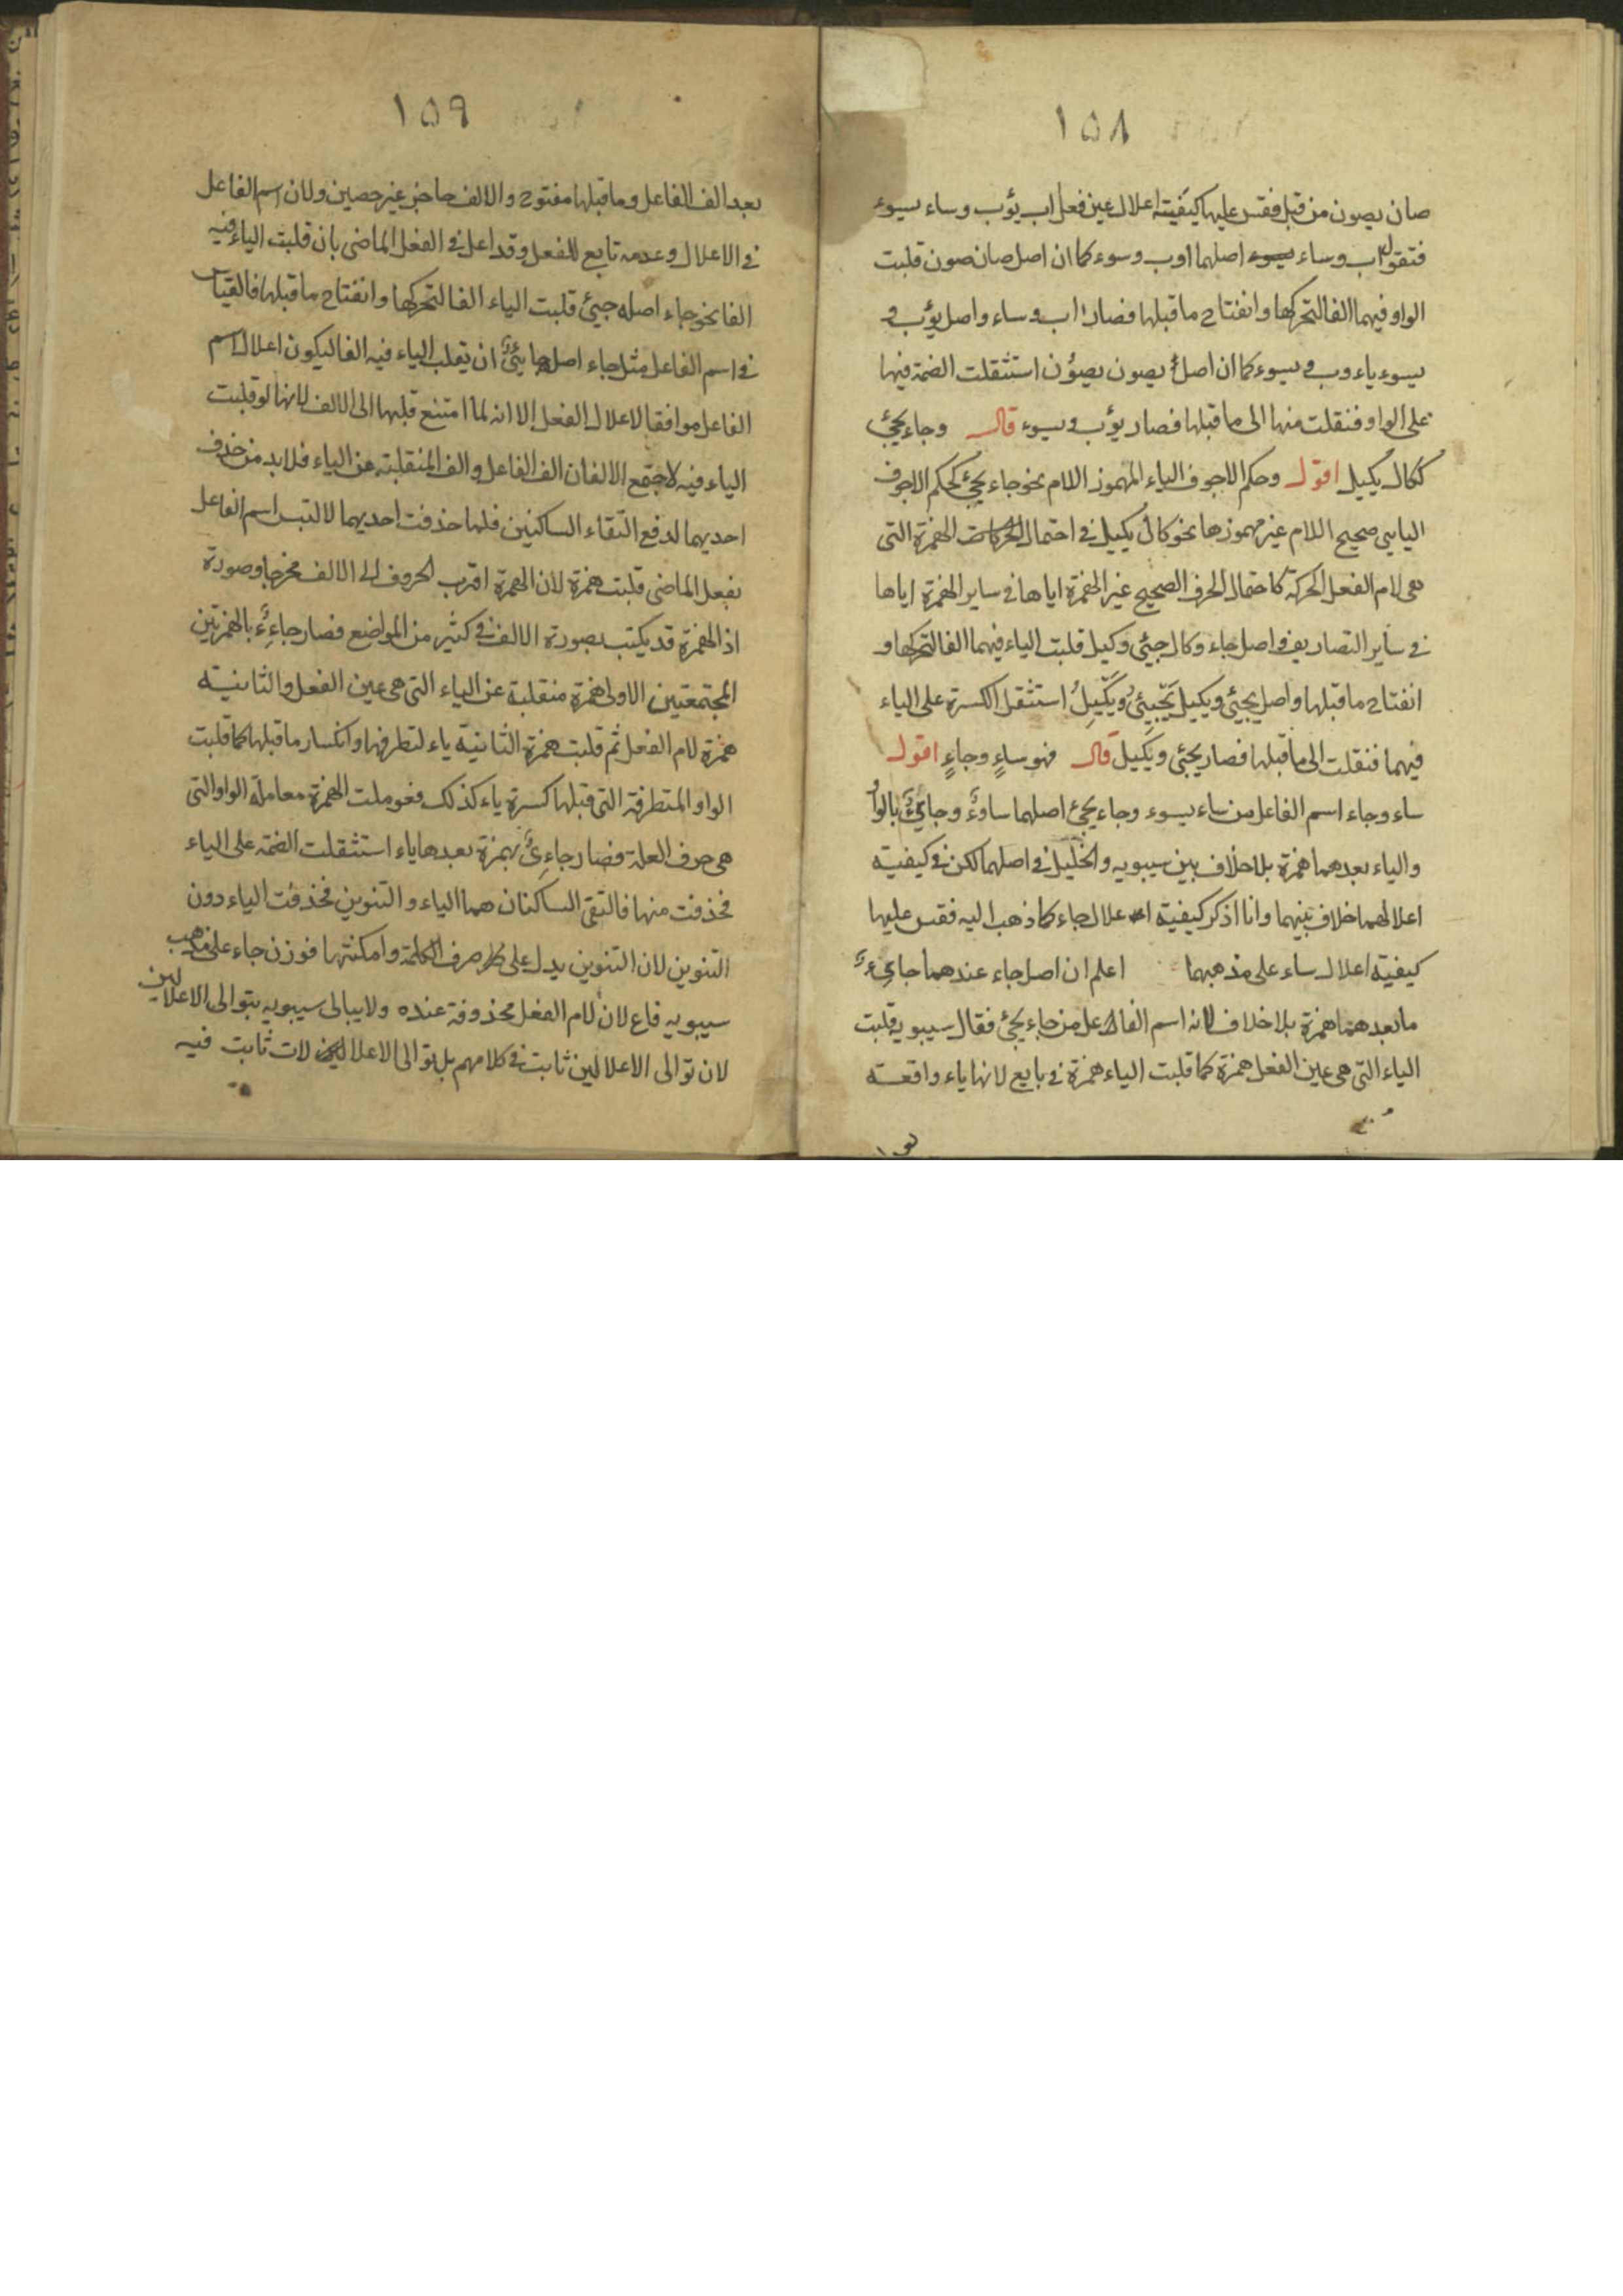 ١٥٨
صان يصون من قبل فقس عليها كيفية اعلال عين فعل اب يؤب وساء يسوء
فتقول اب وساء اصلهما اوب وسوء كما ان اصل صان صون قلبت
الواو فيهما الفا لتحركها وانفتاح ما قبلها فصارا اب وساء واصل يؤب و
يسوء ياءوب و يسوء كما ان اصل يصون يصوُن استثقلت الضمة فيها
على الواو فنقلت منها الى ما قبلها فصار يؤب و يسوء قال وجاء يجئ
ككال يكيل اقول وحكم الاجوف الياء المهموز اللام نحو جاء يجئ كحكم الاجوف
اليايى صحيح اللام غير مهموزها نحو كال يكيل فى احتمال الهمزة التى
هى لام الفعل الحركة كاحتمال الحرف الصحيح غير الهمزة اياها فى ساير الهمزة اياها
فى ساير التصاريف واصل جاء وكال جيئ وكيل قلبت الياء فيهما الفا لتحركها و
انفتاح ما قبلها واصل يجئ ويكيل يَجْيِئُ ويَكْيِلُ استثقل الكسرة على الياء
فيهما فنقلت الى ما قبلها فصار يجئ ويكيل قال فهو ساءٍ وجاءٍ اقول
ساء وجاء اسم الفاعل من ساء يسوء وجاء يجئ اصلهما ساوءٌ وجايئٌ بالواو
والياء بعدهما همزة بلا خلاف بين سيبويه والخليل فى اصلهما لكن فى كيفية
اعلالهما خلاف بينهما وانا اذكر كيفية اعلال جاء كما ذهب اليه فقس عليها
كيفية اعلال ساء على مذهبهما اعلم ان اصل جاء عندهما جايءٌ
ما بعدهما همزة بلا خلاف لانه اسم الفاعل من جاء يجئ فقال سيبويه قلبت
الياء التى هى عين الفعل همزة كما قلبت الياء همزة فى بايع لانها ياء واقعة
١٥٩
بعد الف الفاعل وما قبلها مفتوح والالف حاجز غير حصين ولان اسم الفاعل
فى الاعلال وعدمه تابع للفعل وقد اعل فى الفعل الماضى بان قلبت الياء فيه
الفا نحو جاء اصله جيئ قلبت الياء الفا لتحركها وانفتاح ما قبلها فالقياس
فى اسم الفاعل مثل جاء اصله جايئٌ ان يقلب الياء فيه الفا ليكون اعلال اسم
الفاعل موافقا لاعلال الفعل الا انه لما امتنع قلبها الى الالف لانها لو قلبت
الياء فيه لاجتمع الالفان الف الفاعل والف المنقلبة عن الياء فلا بد من حذف
احديهما لدفع التقاء الساكنين فلما حذفت احديهما لالتبس اسم الفاعل
بفعل الماضى قلبت همزة لان الهمزة اقرب الحروف الى الالف مخرجا وصورة
اذ الهمزة قد يكتب بصورة الالف فى كثير من المواضع فصار جاءِءٌ بالهمزتين
المجتمعتين الاولى همزة منقلبة عن الياء التى هى عين الفعل والثانية
همزة لام الفعل ثم قلبت همزة الثانية ياء لتطرفها وانكسار ما قبلها كما قلبت
الواو المتطرفة التى قبلها كسرة ياء كذلك فعوملت الهمزة معاملة الواو التى
هى حرف العلة فصار جاءِىٌ بهمزة بعدها ياء استثقلت الضمة على الياء
فحذفت منها فالتقى الساكنان هما الياء والتنوين فحذفت الياء دون
التنوين لان التنوين يدل على صرف الكلمة وامكنتها فوزن جاء على مذهب
سيبويه فاع لان لام الفعل محذوفة عنده ولا يبالى سيبويه بتوالى الاعلالين
لان توالى الاعلالين ثابت فى كلامهم بل توالى الاعلالين ثابت فيه